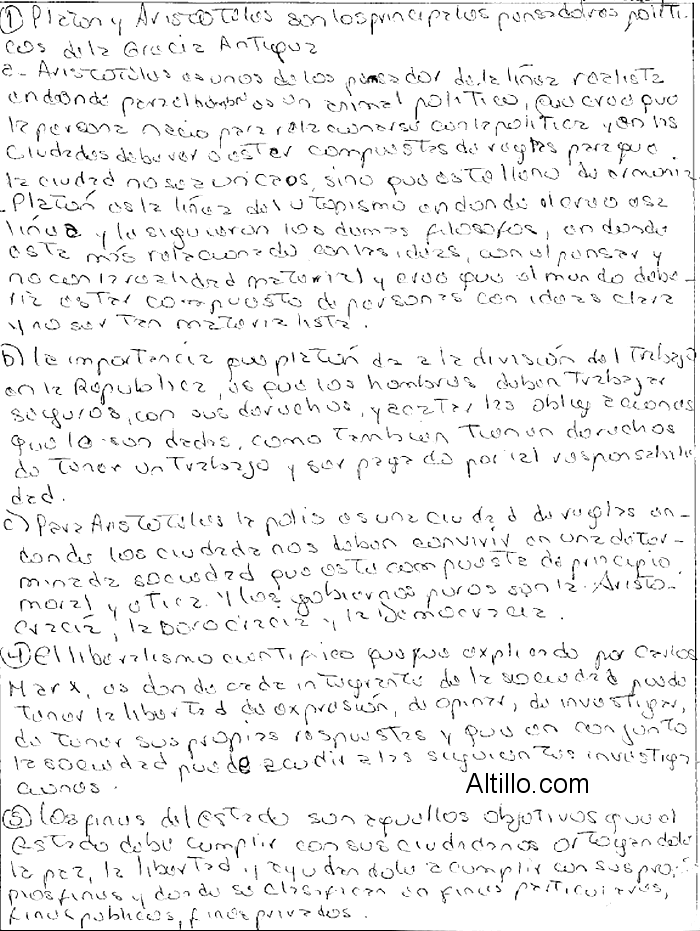 ① Platon y Aristoteles son los principales pensadores políti-
cos de la Grecia Antigua
a- Aristoteles es unos de los pensador de la línea realista
en donde para el hombre es un animal politico, que cree que
la persona nacio para relacionarse con la politica y en las
ciudades debe ver o estar compuestas de reglas para que
la ciudad no sea un caos, sino que este lleno de armonia
- Platón es la línea del utopismo en donde el creo esa
línea y la siguieron los demas filosofos, en donde
esta más relacionado con las ideas, con el pensar y
no con la realidad material y cree que el mundo debe-
ria estar compuesto de personas con ideas clara
y no ser tan materialista.
b) la importancia que platón da a la división del Trabajo
en la Republica, es que los hombres deben Trabajar
seguros, con sus derechos, y acatar las obligaciones
que le son dada, como tambien tienen derechos
de tener un Trabajo y ser pagado por tal responsabili-
dad.
c) Para Aristoteles la polis es una ciudad de reglas en-
donde los ciudadanos deben convivir en una deter-
minada sociedad que este compuesta de principio
moral y etica. Y los gobiernos puros son la Aristo-
cracia, la y la Democracia.
④ El liberalismo cientifico que fue explicado por Carlos
Marx, es donde cada integrante de la sociedad puede
tener la libertad de expresión, de opinar, de investigar,
de tener sus propias respuestas y que en conjunto
la sociedad puede acudir a las siguientes investiga
ciones.
Altillo.com
⑤ los fines del estado son aquellos objetivos que el
estado debe cumplir con sus ciudadanos otorgandole
la paz, la libertad y ayudandole a cumplir con sus pro-
pios fines y donde se clasifican en fines particulares,
fines publicos, fines privados.